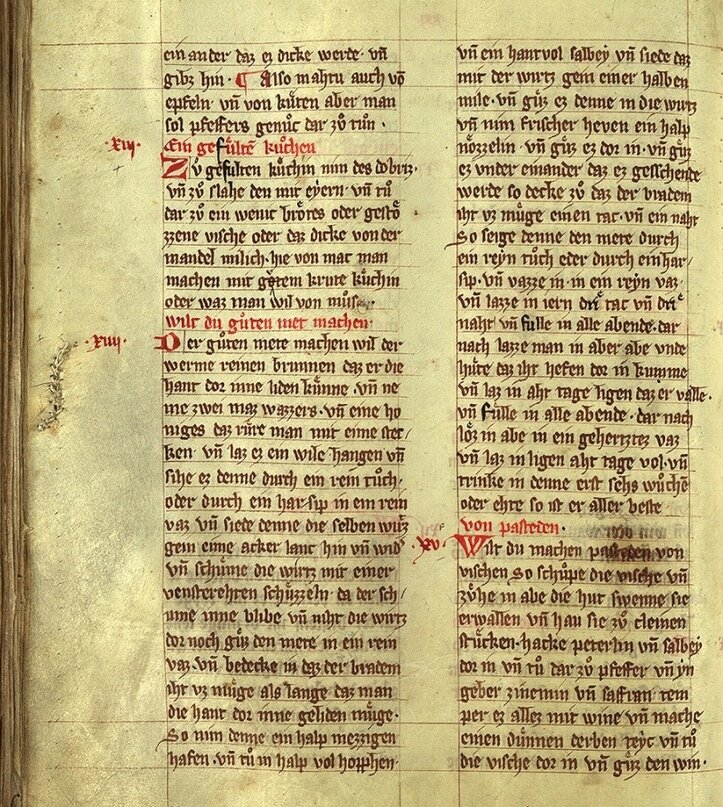 ein ander daz ez dicke werde · vñ
gibz hin · Also mahtu auch vō
epfeln · vñ von küten aber man
sol pfeffers genůc dar zů tůn ·
xiij · Ein gefülte kůchen
Zů gefulten kůchin nim des
vñ zů slahe den mit eyern · vñ tů
dar zů ein wenic brôtes oder gestô
zzene vische oder daz dicke von der
mandel milich · hie von mac man
machen mit gůtem krute kůchin
oder waz man wil von můse
wilt du gůten met machen ·
xiiij · Der gůten mete machen wil der
werme reinen brunnen daz er die
hant dor inne liden kůnne · vñ ne
me zwei maz wazzers · vñ eine ho
niges daz rüre man mit eime stec/
ken · vñ laz ez ein wile hangen vñ
sihe ez denne durch ein rein tůch ·
oder durch ein har sip in ein rein
vaz · vñ siede denne die selben wirtz
gein eime acker lanc hin vñ wid'
vñ schume die wirtz mit einer
vensterehten schüzzeln · da der sch/
ume inne blibe · vñ niht die wirtz
dor noch güz den mete in ein rein
vaz vñ bedecke in daz der bradem
iht vz müge als lange daz man
die hant dor inne geliden müge ·
So nim denne ein halp mezzigen
hafen · vñ tů in halp vol hopphen
vñ ein hantvol salbey vñ siede daz
mit der wirtz gein einer halben
mile · vñ güz ez denne in die wirtz
vñ nim frischer heven ein halp
nôzzelin · vñ güz ez dor in · vñ güz
ez vnder einander daz ez gesschende
werde so decke zů daz der bradem
iht vz müge einen tac · vñ ein naht
So seige denne den mete durch
ein reyn tůch oder durch ein har/
sip · vñ vazze in in ein reyn vaz ·
vñ lazze in iern drie tac vñ drie
naht vñ fülle in alle abende · dar
nach lazze man in aber abe vnde
hüte daz iht hefen dor in kumme
vñ laz in aht tage ligen daz er valle ·
vñ fülle in alle abende · dar nach
lôz in abe in ein gehertztez vaz
vñ laz in ligen aht tage vol · vñ
trinke in denne erst sehs wůchē
oder ehte so ist er aller beste ·
von pasteden ·
xv · Wilt du machen pasteden von
vischen So schůpe die vische vñ
zůhe in abe die hut swenne sie
erwallen vñ hau sie zů cleinen
stücken · hacke peterlin vñ salbey
dor in vñ tů dar zů pfeffer vñ yn
geber zinemin vñ saffran · tem
per ez allez mit wine vñ mache
einen dünnen derben teyc vñ tů
die vische dor in vñ güz den win ·